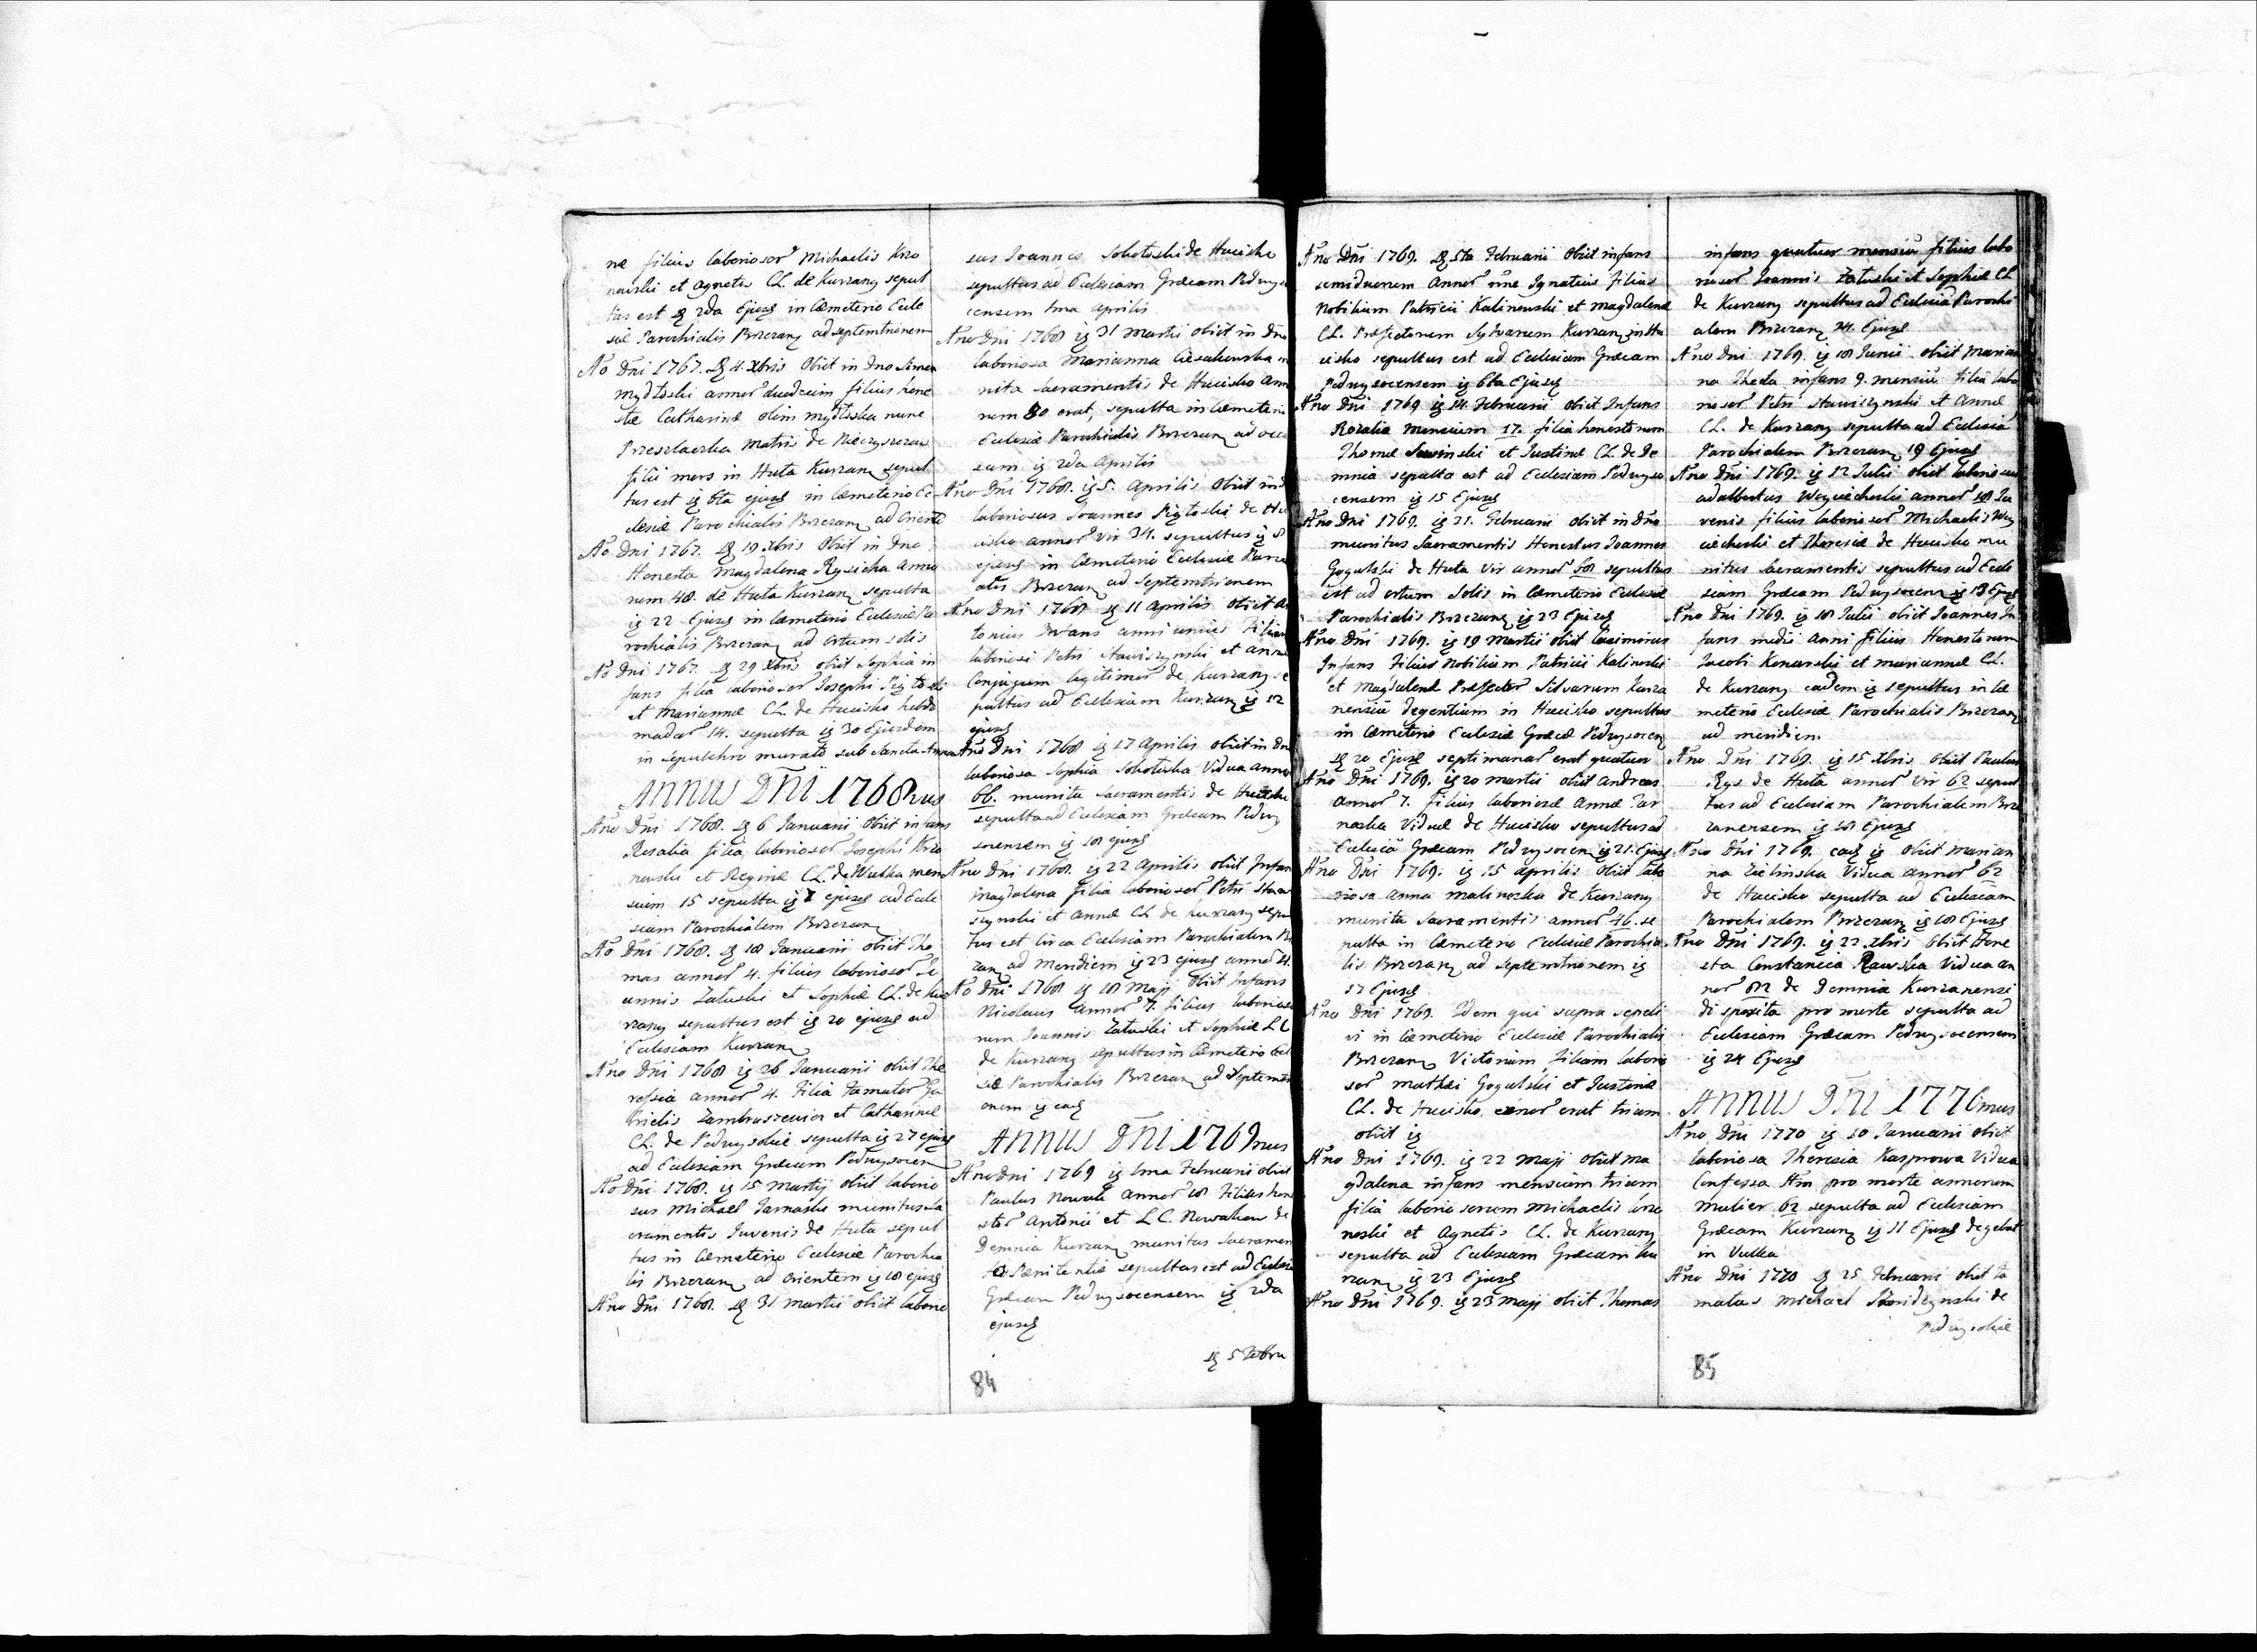 næ filius laboriosor Michaelis Krzo
nowski et Agnetis CL. de Kurzany sepul
tus est 2da Ejusq in Cæmeterio Eccle
siæ Parochialis Brzezany ad septemtrionem
Ao Dni 1767. 4. Xbris Obiit in Dno Simon
annor duodecim filius hone
stæ Catharinæ olim nunc
Matris de
filii mors in Huta Kurzany sepul
tus est 6ta ejusq in Cæmeterio Ec
clesiæ Parochialis Brzezany ad Oriente
Ao Dni 1767. 19 Xbris Obiit in Dno
Honesta Magdalena Rysicha Anno
rum 48. de Huta Kurzany sepulta
22 Ejusq in Cæmeterio Ecclesiæ Pa
rochialis Brzezany ad ortum solis
Ao Dni 1767. 29 Xbris obiit Sophia in
fans filia laboriosor Josephi
et Mariannæ CL. de Hucisko hebdo
madar 14. sepulta 30 Ejusdem
in sepulchro murato sub Sancta Anna
ANNUS DNI 1768vus
Ano Dni 1768. 6 Januarii Obiit infans
Rosalia filia laboriosor Josephi Krzo
nowski et Reginæ CL. de Wulka men
sium 15 sepulta 7 ejusq ad Eccle
siam Parochialem Brzezany
Ao Dni 1768. 18 Januarii obiit Tho
mas annor 4. filius laboriosor Jo
annis Zatuski et Sophiæ CL. de Kur
zany sepultus est 20 ejusq ad
Ecclesiam Kurzany
Ano Dni 1768 26 Januarii obiit The
resia annor 4. Filia famator Ga
brielis et Catharinæ
CL. de Podwysokie sepulta 27 ejusq
ad Ecclesiam Græcam Podwysocen
Ao Dni 1768. 15 Martij obiit laborio
sus Michael Tarnaski munitus Sa
cramentis Juvenis de Huta sepul
tus in Cæmeterio Ecclesiæ Parochia
lis Brzezany ad Orientem 18 ejusq
Ano Dni 1768. 31 Martii obiit laborio
sus Joannes Sobotoski de Hucisko
sepultus ad Ecclesiam Græcam Podwyso
censem 1ma Aprilis
Ano Dni 1768 31 Martii obiit in Dno
laboriosa Marianna
nita Sacramentis de Hucisko Anno
rum 80 erat, sepulta in Cæmeterio
Ecclesiæ Parochialis Brzezany ad occa
sum 2da Aprilis
Ano Dni 1768. 5. Aprilis Obiit in D
laboriosus Joannes de Hu
cisko annor vir 34. sepultus 8
ejusq in Cæmeterio Ecclesiæ Paro
alis Brzezany ad Septemtrionem
Ano Dni 1768 11 Aprilis Obiit An
tonius Infans anni unius Filius
laboriosi Petri Stawiszynski et Annæ
Conjugum legitimor de Kurzany se
pultus ad Ecclesiam Kurzany 12
ejusq
Ano Dni 1768 17 Aprilis obiit in Dno
laboriosa Sophia Sobotoska Vidua annor
66. munita Sacramentis de Hucisko
sepulta ad Ecclesiam Græcam Podwy
socensem 18 ejusq
Ano Dni 1768. 22 Aprilis obiit Infans
Magdalena filia laboriosor Petri Stawi
szynski et Annæ CL de Kurzany sepul
tus est circa Ecclesiam Parochialem Br
zany ad Meridiem 23 ejusq annor 4.
Ao Dni 1768 18 Maji Obiit Infans
Nicolaus annor 7. filius laborioso
rum Joannis Zatuski et Sophiæ LC
de Kurzany sepultus in Cæmeterio Eccl
siæ Parochialis Brzezany ad Septemtri
onem eadq
ANNUS DNI 1769nus
Ano Dni 1769 1ma Februarii obiit
Paulus Nowak annor 18 Filius hone
stor Antonii et L.C. Nowakow de
Demnia Kurzany munitus Sacramen
to Pœnitentiæ sepultus est ad Ecclesia
Græcam Podwysocensem 2da
ejusq
5 Febru
84
Ano Dni 1769. 5ta Februarii Obiit infans
semiduorum Annor nne Ignatius Filius
Nobilium Patricii Kalinowski et Magdalenæ
CL. Præfectorum Sylvarum Kurzany in Hu
cisko sepultus est ad Ecclesiam Græcam
Podwysocensem 6ta Ejusq
Ano Dni 1769 14. Februarii Obiit Infans
Rozalia Mensium 17. filia honestorum
Thomæ Sawinski et Justinæ CL. de De
mnia sepulta est ad Ecclesiam Podwyso
censem 15 Ejusq
Ano Dni 1769. 21. Februarii obiit in Dno
munitus Sacramentis Honestus Joannes
Gogulski de Huta Vir annor 68 sepultus
est ad ortum Solis in Cæmeterio Ecclesiæ
Parochialis Brzezany 23 Ejusq
Ano Dni 1769. 19 Martii obiit Casimirus
Infans Filius Nobilium Patricii Kalinoski
et Magdalenæ Præfector Silvarum Kurza
nensiu degentium in Hucisko sepultus
in Cæmeterio Ecclesiæ Græcæ Podwysocen
20 Ejusq septimanar erat quatuor
Ano Dni 1769. 20 Martii obiit Andreas
annor 7. filius laboriosæ Annæ Tar
noska Viduæ de Hucisko sepultus ad
Ecclesia Græcam Podwysocen 21. Ejusq
Ano Dni 1769. 15 Aprilis Obiit labo
riosa Anna Malinoska de Kurzany
munita Sacramentis annor 46. se
pulta in Cæmeterio Ecclesiæ Parochia
lis Brzezany ad Septemtrionem
17 Ejusq
Ano Dni 1769. Idem qui supra sepeli
vi in Cæmeterio Ecclesiæ Parochialis
Brzezany Victoriam filiam laborio
sor Mathæi Gogulski et Justinæ
CL. de Hucisko, annor erat trium
obiit
Ano Dni 1769. 22 Maji obiit Ma
gdalena infans mensium trium
filia laboriosorum Michaelis Krzo
noski et Agnetis CL. de Kurzany
sepulta ad Ecclesiam Græcam Ku
rzany 23 Ejusq
Ano Dni 1769. 23 Maji obiit Thomas
infans quatuor mensiu filius labo
riosor Joannis Zatuski et Sophiæ CL
de Kurzany sepultus ad Ecclesia Parochi
alem Brzezany 24. Ejusq
Ano Dni 1769. 18 Junii obiit Marian
na Thecla infans 9. mensiu filia labo
riosor Petri Stawiszynski et Annæ
CL. de Kurzany sepulta ad Ecclesia
Parochialem Brzezany 19 Ejusq
Ano Dni 1769. 12 Julii obiit laboriosus
Adalbertus Woyciechoski annor 18 Ju
venis filius laboriosor Michaelis Woy
ciechoski et Theresiæ de Hucisko mu
nitus Sacramentis sepultus ad Eccle
siam Græcam Podwysocen 13 Ejusq
Ano Dni 1769. 18 Julii obiit Joannes In
fans medii anni filius Honestorum
Jacobi Konarski et Mariannæ CL.
de Kurzany eadem sepultus in Cæ
meterio Ecclesiæ Parochialis Brzezany
ad meridiem
Ano Dni 1769. 15 Xbris obiit Paulus
Rys de Huta annor Vir 62 sepul
tus ad Ecclesiam Parochialem Brze
zanensem 18 Ejusq
Ano Dni 1769. eadq obiit Marian
na Zielinska Vidua annor 62
de Hucisko sepulta ad Ecclesiam
Parochialem Brzezany 18 Ejusq
Ano Dni 1769. 22 Xbris Obiit Hone
sta Constancia Rawska Vidua an
nor 82 de Demnia Kurzanensi
disposita pro morte sepulta ad
Ecclesiam Græcam Podwysocensem
24 Ejusq
ANNUS DNI 1770mus
Ano Dni 1770 10 Januarii obiit
laboriosa Theresia Kasprowa Vidua
Confessa pro morte annorum
mulier 62 sepulta ad Ecclesiam
Græcam Kurzany 11 Ejusq degebat
in Vulka
Ano Dni 1770 25 Februarii obiit fa
matus Michael de
Podwysokiè
85